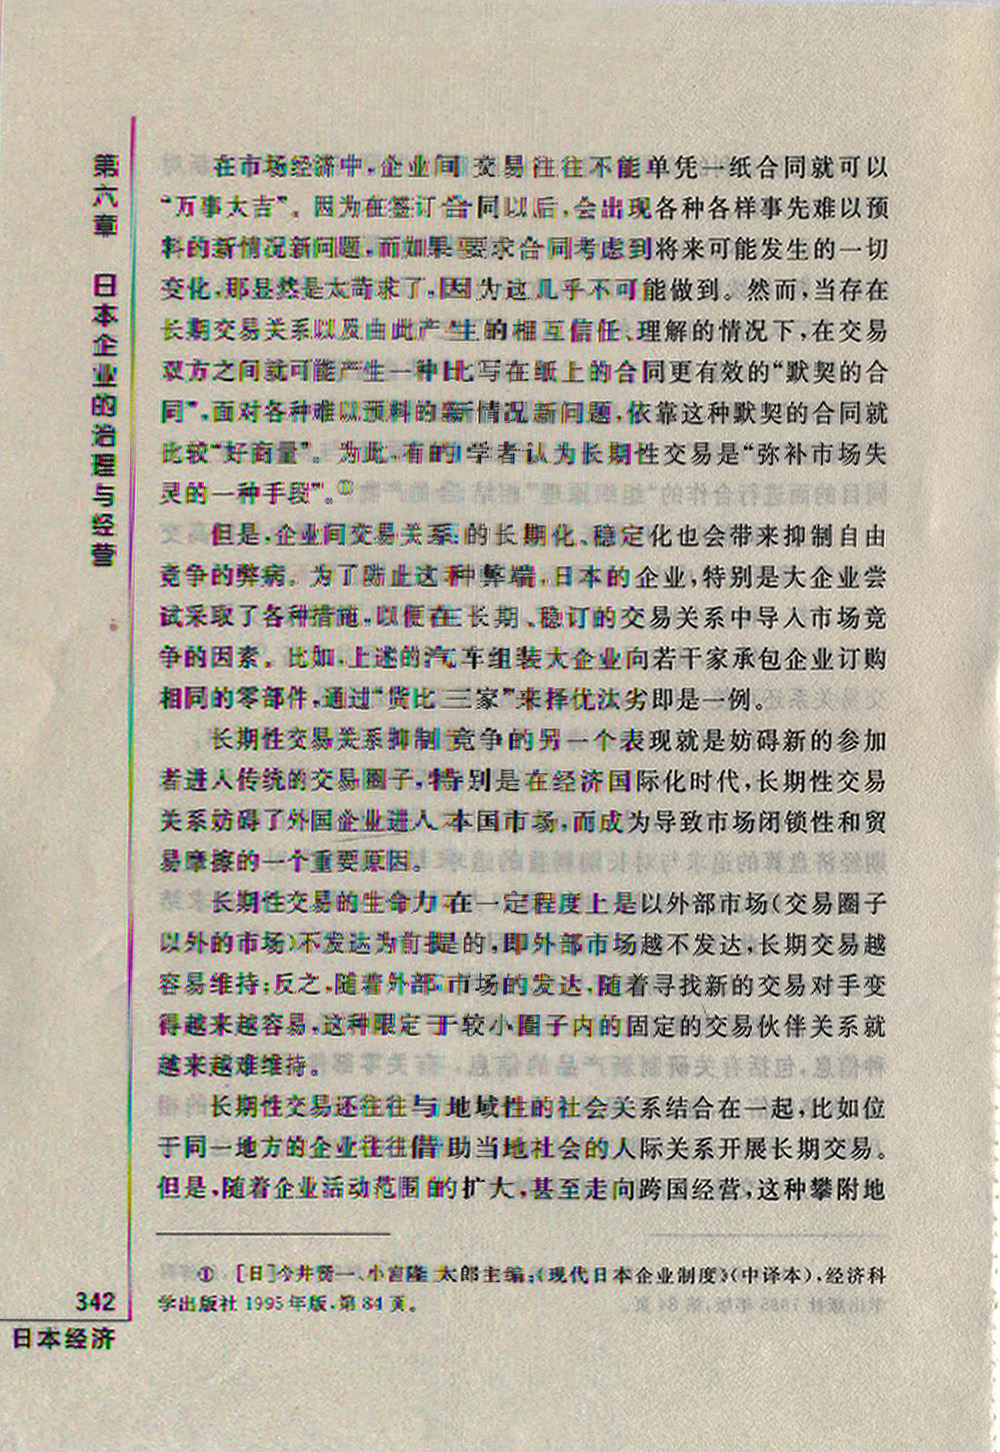 第六章 日本企业的治理与经营
在市场经济中，企业间交易往往不能单凭一纸合同就可以
“万事大吉”。因为在签订合同以后，会出现各种各样事先难以预
料的新情况新问题，而如果要求合同考虑到将来可能发生的一切
变化，那显然是太苛求了，因为这几乎不可能做到。然而，当存在
长期交易关系以及由此产生的相互信任、理解的情况下，在交易
双方之间就可能产生一种比写在纸上的合同更有效的“默契的合
同”，面对各种难以预料的新情况新问题，依靠这种默契的合同就
比较“好商量”。为此，有的学者认为长期性交易是“弥补市场失
灵的一种手段”。①
但是，企业间交易关系的长期化、稳定化也会带来抑制自由
竞争的弊病。为了防止这种弊端，日本的企业，特别是大企业尝
试采取了各种措施，以便在长期、稳订的交易关系中导入市场竞
争的因素。比如，上述的汽车组装大企业向若干家承包企业订购
相同的零部件，通过“货比三家”来择优汰劣即是一例。
长期性交易关系抑制竞争的另一个表现就是妨碍新的参加
者进入传统的交易圈子，特别是在经济国际化时代，长期性交易
关系妨碍了外国企业进入本国市场，而成为导致市场闭锁性和贸
易摩擦的一个重要原因。
长期性交易的生命力在一定程度上是以外部市场（交易圈子
以外的市场）不发达为前提的，即外部市场越不发达，长期交易越
容易维持；反之，随着外部市场的发达，随着寻找新的交易对手变
得越来越容易，这种限定于较小圈子内的固定的交易伙伴关系就
越来越难维持。
长期性交易还往往与地域性的社会关系结合在一起，比如位
于同一地方的企业往往借助当地社会的人际关系开展长期交易。
但是，随着企业活动范围的扩大，甚至走向跨国经营，这种攀附地
① [日]今井贤一、小宫隆太郎主编：《现代日本企业制度》（中译本），经济科
学出版社1995年版，第84页。
342
日本经济